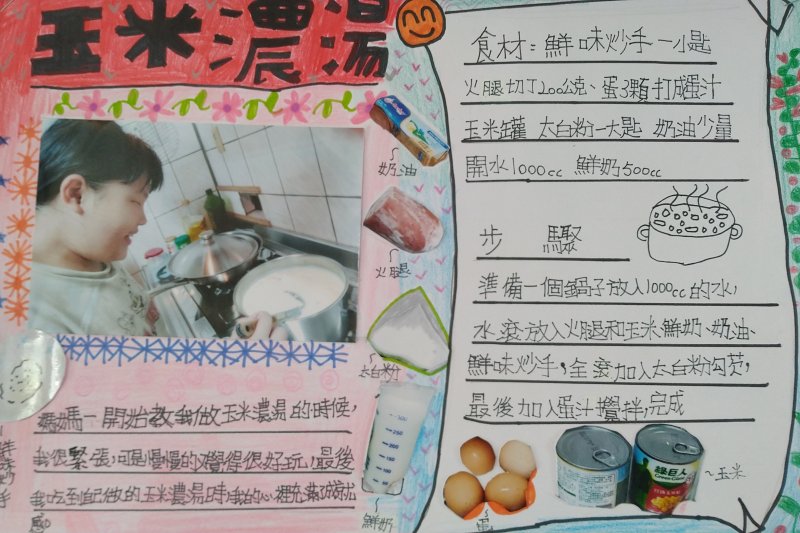 玉米濃湯
奶油
火腿
太白粉
鮮奶
媽媽一開始教我做玉米濃湯的時候，
我很緊張，可是慢慢的覺得很好玩，最後
我吃到自己做的玉米濃湯時，我的心裡充滿成就
感
鮮味炒手
食材：鮮味炒手一小匙
火腿切丁200公克、蛋3顆打成蛋汁
玉米罐 太白粉一大匙 奶油少量
開水1000cc 鮮奶500cc
步 驟
準備一個鍋子放入1000cc的水，
水滾放入火腿和玉米、鮮奶、奶油、
鮮味炒手，全滾加入太白粉勾芡，
最後加入蛋汁攪拌，完成
蛋
綠巨人
Green Giant
玉米
300
250
200
150
100
50